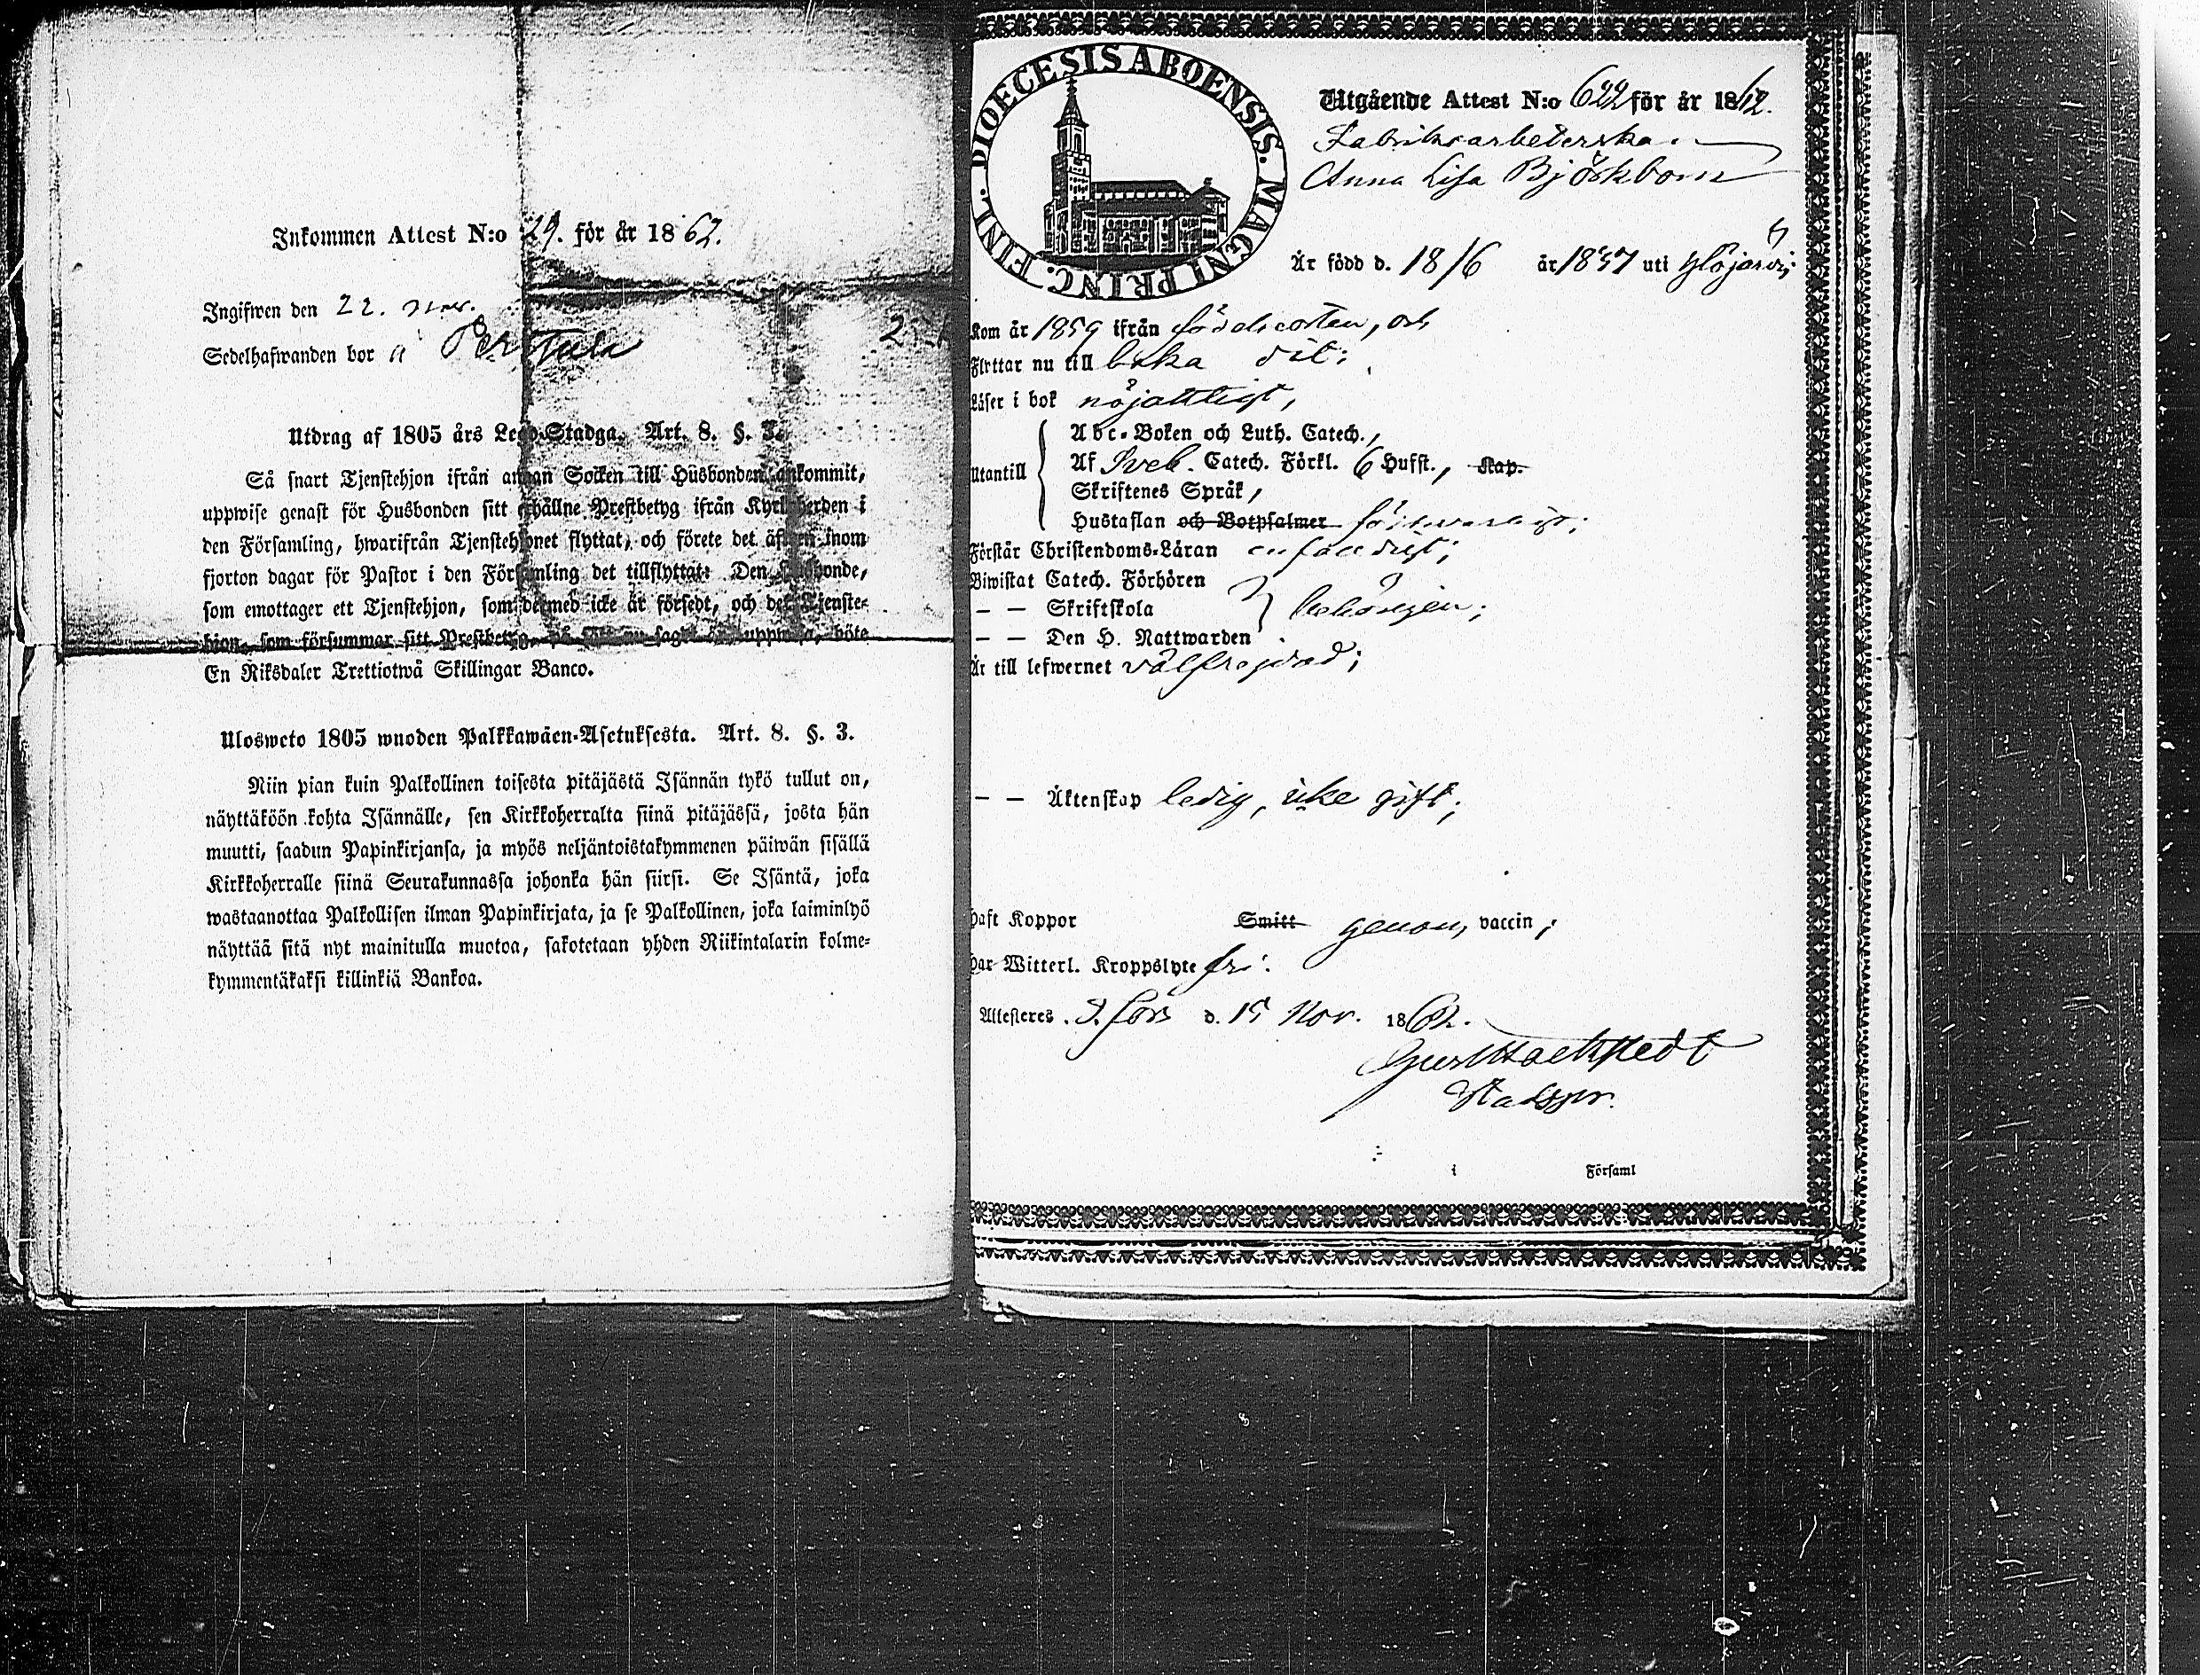 Inkommen Attest N:o 29. för år 1862.
Ingifwen den 22. nov.
Sedelhafwanden bor å Perttula
Utdrag af 1805 års Lego-Stadga. Art. 8. §. 3.
Så snart Tjenstehjon ifrån annan Socken till Husbonden ankommit,
uppwise genast för Husbonden sitt erhållne Prestbetyg ifrån Kyrkoherden i
den Församling, hwarifrån Tjenstehjonet flyttat, och förete det äfwen inom
fjorton dagar för Pastor i den Församling det tillflyttat. Den Husbonde,
som emottager ett Tjenstehjon, som dermed icke är försedt, och det Tjenste-
hjon, som försummar sitt Prestbetyg, på sätt nu sagdt är uppwisa, böte
En Riksdaler Trettiotwå Skillingar Banco.
Ulosweto 1805 wuoden Palkkawäen-Asetuksesta. Art. 8. §. 3.
Niin pian kuin Palkollinen toisesta pitäjästä Isännän tykö tullut on,
näyttäköön kohta Isännälle, sen Kirkkoherralta siinä pitäjässä, josta hän
muutti, saadun Papinkirjansa, ja myös neljäntoistakymmenen päiwän sisällä
Kirkkoherralle siinä Seurakunnassa johonka hän siirsi. Se Isäntä, joka
wastaanottaa Palkollisen ilman Papinkirjata, ja se Palkollinen, joka laiminlyö
näyttää sitä nyt mainitulla muotoa, sakotetaan yhden Riikintalarin kolme-
kymmentäkaksi killinkiä Bankoa.
DIOECESIS ABOENSIS. MAGNI PRINC. FINL.
Utgående Attest N:o 622 för år 1862.
Fabriksarbeterska
Anna Lisa Björkbom
Är född d. 18/6 år 1837 uti Ylöjärvi
Kom år 1859 ifrån födelseorten, och
Flyttar nu till baka dit;
Läser i bok nöjaktigt,
Abc-Boken och Luth. Catech.,
Utantill Af Sveb. Catech. Förkl. 6 Hufst., Kap.
Skriftenes Språk,
Hustaflan och Botpsalmer försvarligt;
Förstår Christendoms-Läran enfaldigt;
Biwistat Catech. Förhören
— — Skriftskola behörigen;
— — Den H. Nattwarden
Är till lefwernet välfrejdad;
— — Äktenskap ledig, icke gift;
Haft Koppor Smitt genom vaccin;
Har Witterl. Kroppslyte fri.
Attesteres. T.fors d. 15 Nov. 1862.
i Församl